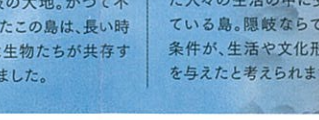 の大地。かつて本
たこの島は、長い時
生物たちが共存す
ました。
た人々の生活の中に
ている島。隠岐ならで
条件が、生活や文化形
を与えたと考えられま